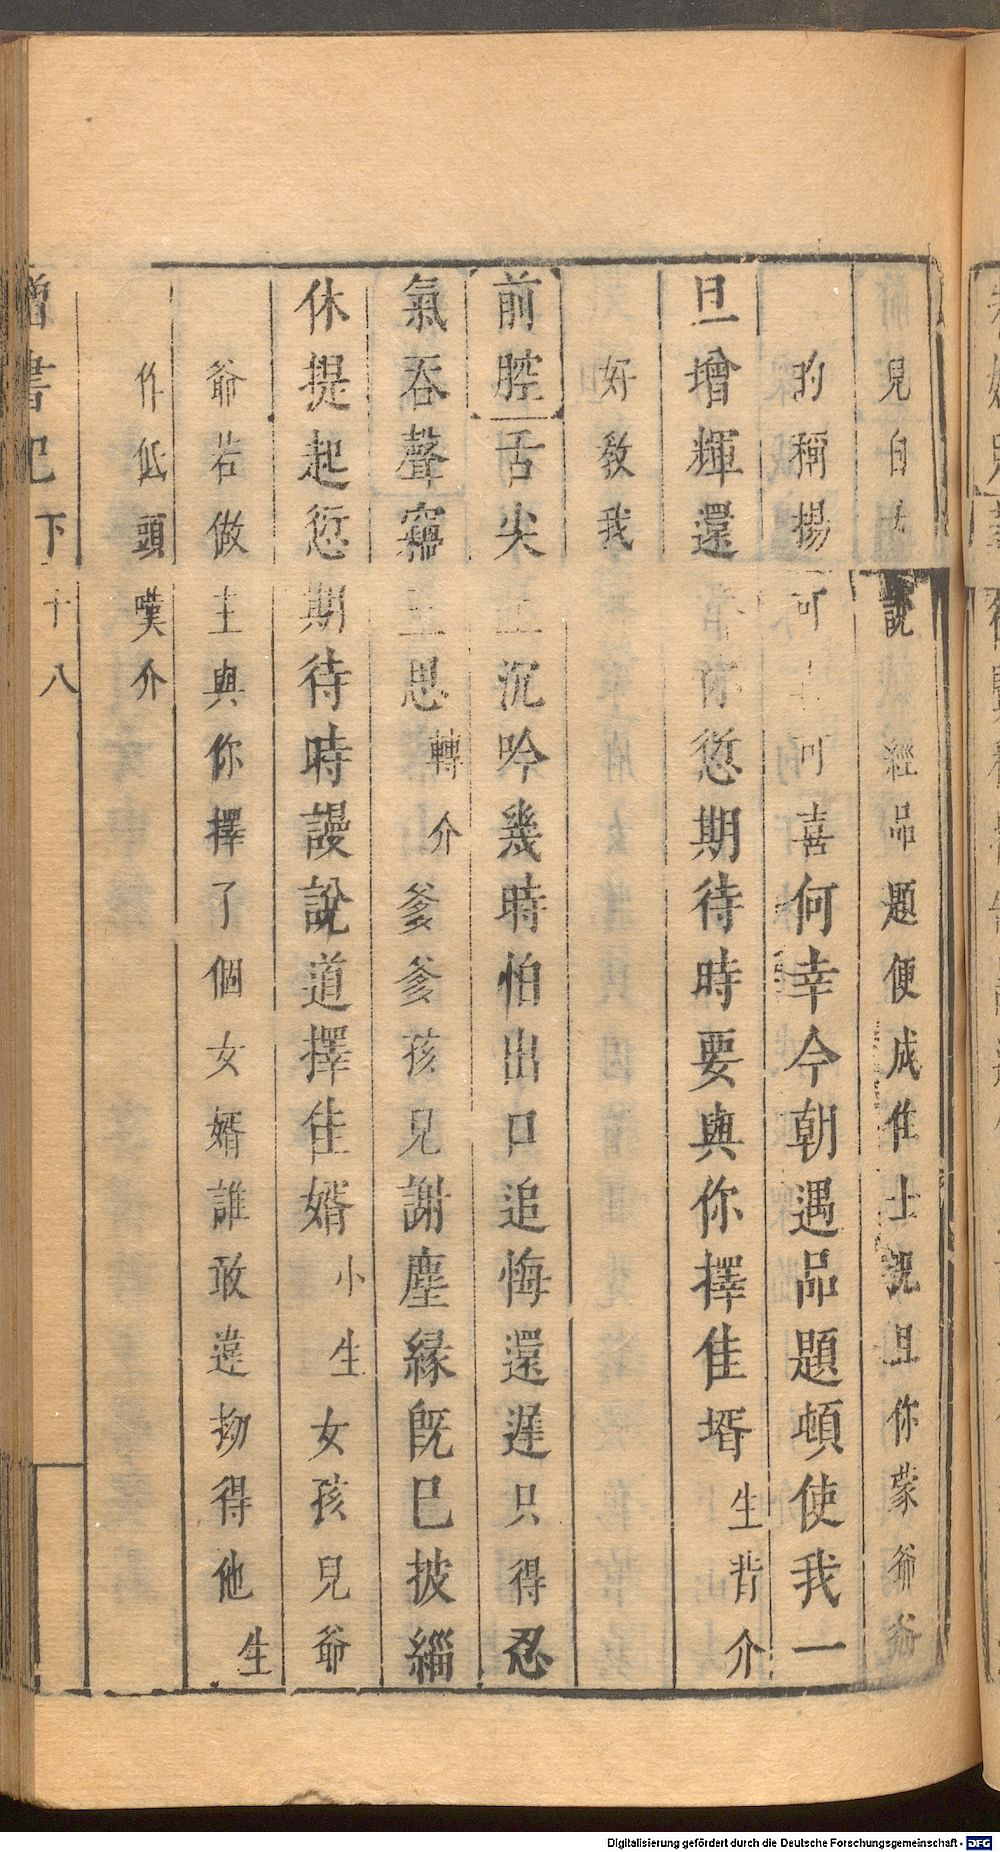 兒自女說經品題便成佳士況且你蒙爺爺
的稱揚可 可喜何幸今朝遇品題頓使我一
旦增輝還 你愆期待時要與你擇佳壻生背介
好教我
前腔舌尖上沉吟幾時怕出口追悔還遲只得忍
氣吞聲 思轉介爹爹孩兒謝塵緣旣已披緇
休提起愆期待時謾說道擇佳婿小生女孩兒爺
爺若做主與你擇了個女婿誰敢違拗得他生
作低頭嘆介
書記下十八
Digitalisierung gefördert durch die Deutsche Forschungsgemeinschaft - DFG